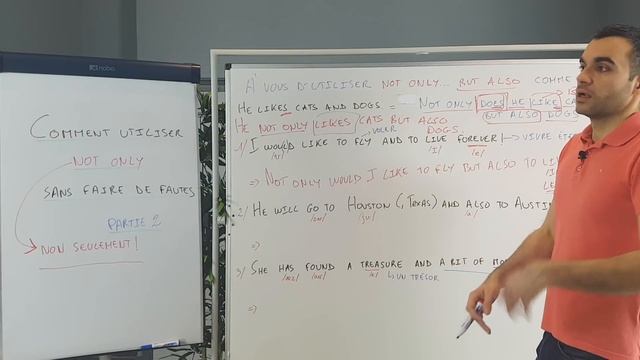 nobo
COMMENT UTILISER
NOT ONLY
SANS FAIRE DE FAUTES
PARTIE 2
NON SEULEMENT!
À VOUS D'UTILISER NOT ONLY... BUT ALSO COMME
HE LIKES CATS AND DOGS = NOT ONLY DOES HE LIKE CA
BUT ALSO DOGS
HE NOT ONLY LIKES CATS BUT ALSO
DOGS
VOLER
1/ I WOULD LIKE TO FLY AND TO LIVE FOREVER → VIVRE
/I/ /e/
⇒ NOT ONLY WOULD I LIKE TO FLY BUT ALSO TO LI
2/ HE WILL GO TO HOUSTON (, TEXAS) AND ALSO TO AUSTIN
⇒
3/ SHE HAS FOUND A TREASURE AND A BIT OF MO
/e/ ↳ UN TRÉSOR
⇒